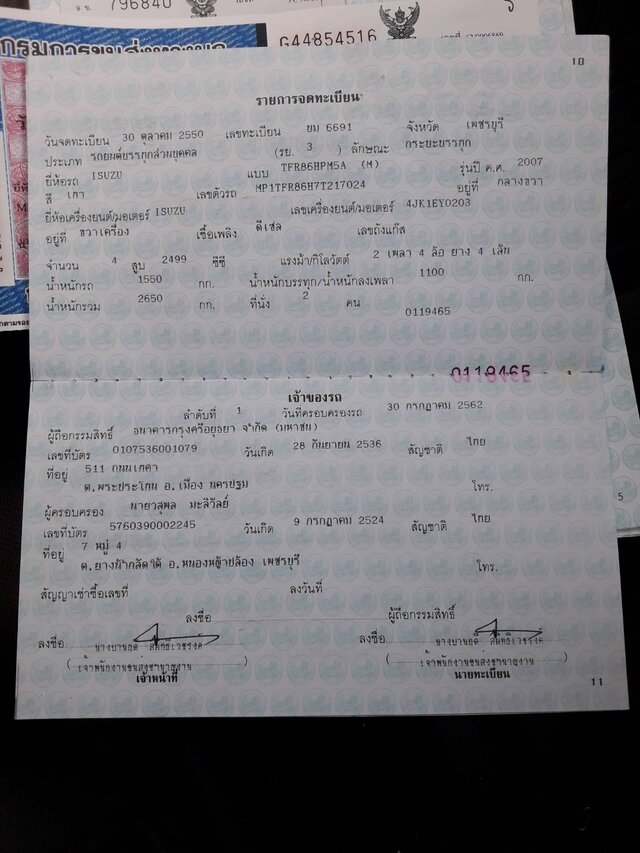 796840
G44854516
10
รายการจดทะเบียน
วันจดทะเบียน 30 ตุลาคม 2550 เลขทะเบียน ยม 6691 จังหวัด เพชรบุรี
ประเภท รถยนต์บรรทุกส่วนบุคคล (รย. 3 ) ลักษณะ กระบะบรรทุก
ยี่ห้อรถ ISUZU แบบ TFR86HPM5A (M) รุ่นปี ค.ศ. 2007
สี เทา เลขตัวรถ MP1TFR86H7T217024 อยู่ที่ กลางขวา
ยี่ห้อเครื่องยนต์/มอเตอร์ ISUZU เลขเครื่องยนต์/มอเตอร์ 4JK1EY0203
อยู่ที่ ขวาเครื่อง เชื้อเพลิง ดีเซล เลขถังแก๊ส
จำนวน 4 สูบ 2499 ซีซี แรงม้า/กิโลวัตต์ 2 เพลา 4 ล้อ ยาง 4 เส้น
น้ำหนักรถ 1550 กก. น้ำหนักบรรทุก/น้ำหนักลงเพลา 1100 กก.
น้ำหนักรวม 2650 กก. ที่นั่ง 2 คน
0119465
0119465
เจ้าของรถ
ลำดับที่ 1 วันที่ครอบครองรถ 30 กรกฎาคม 2562
ผู้ถือกรรมสิทธิ์ ธนาคารกรุงศรีอยุธยา จำกัด (มหาชน)
เลขที่บัตร 0107536001079 วันเกิด 28 กันยายน 2536 สัญชาติ ไทย
ที่อยู่ 511 ถนนเทศา
ต.พระประโทน อ.เมือง นครปฐม โทร.
ผู้ครอบครอง นายวสุพล มะลิวัลย์
เลขที่บัตร 5760390002245 วันเกิด 9 กรกฎาคม 2524 สัญชาติ ไทย
ที่อยู่ 7 หมู่ 4
ต.ยางน้ำกลัดใต้ อ.หนองหญ้าปล้อง เพชรบุรี โทร.
สัญญาเช่าซื้อเลขที่ ลงวันที่
ลงชื่อ ผู้ถือกรรมสิทธิ์
ลงชื่อ ลงชื่อ
เจ้าพนักงานขนส่งชำนาญงาน เจ้าพนักงานขนส่งชำนาญงาน
เจ้าหน้าที่ นายทะเบียน
11
5